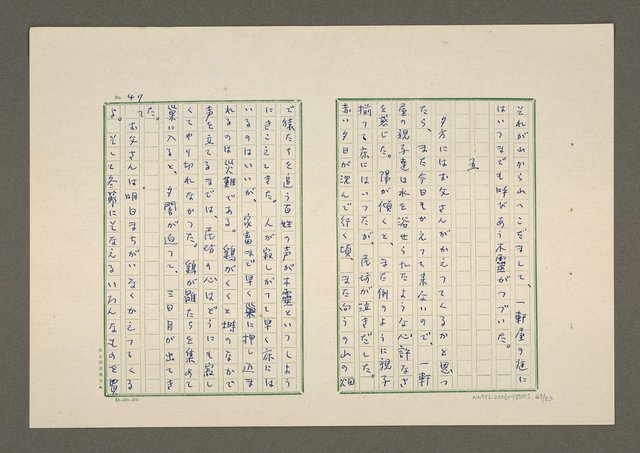 それが山から山へこだまして、一軒屋の庭に
はいつまでも呼びあう木霊がつづいた。
五
夕方にはお父さんがかえってくるかと思っ
たら、また今日もかえって来ないので、一軒
屋の親子達は水を浴せられたような心許なさ
を感じた。陽が傾くと、また例のように親子
揃って床にはいったが、民坊が泣きだした。
赤い夕日が沈んで行く頃、また向うの山の畑
で猿たちを追う百姓の声が木霊といっしょう
にきこえてきた。人が寂しがって早く床には
いるのはいいが、家畜まで早く巣に押し込ま
れるのは災難である。鶏がくくと塒のなかで
声を立てるまでは、民坊の心はどうにも寂し
くてやり切れなかった。鶏が雛たちを集めて
巣に入ると、夕闇が迫って、三日月が出てき
た。
お父さんは明日まちがいなくかえってくる
よ。そして冬節にそなえるいろんなものを買
って
No. 47
NMTL20160980002, 47/83